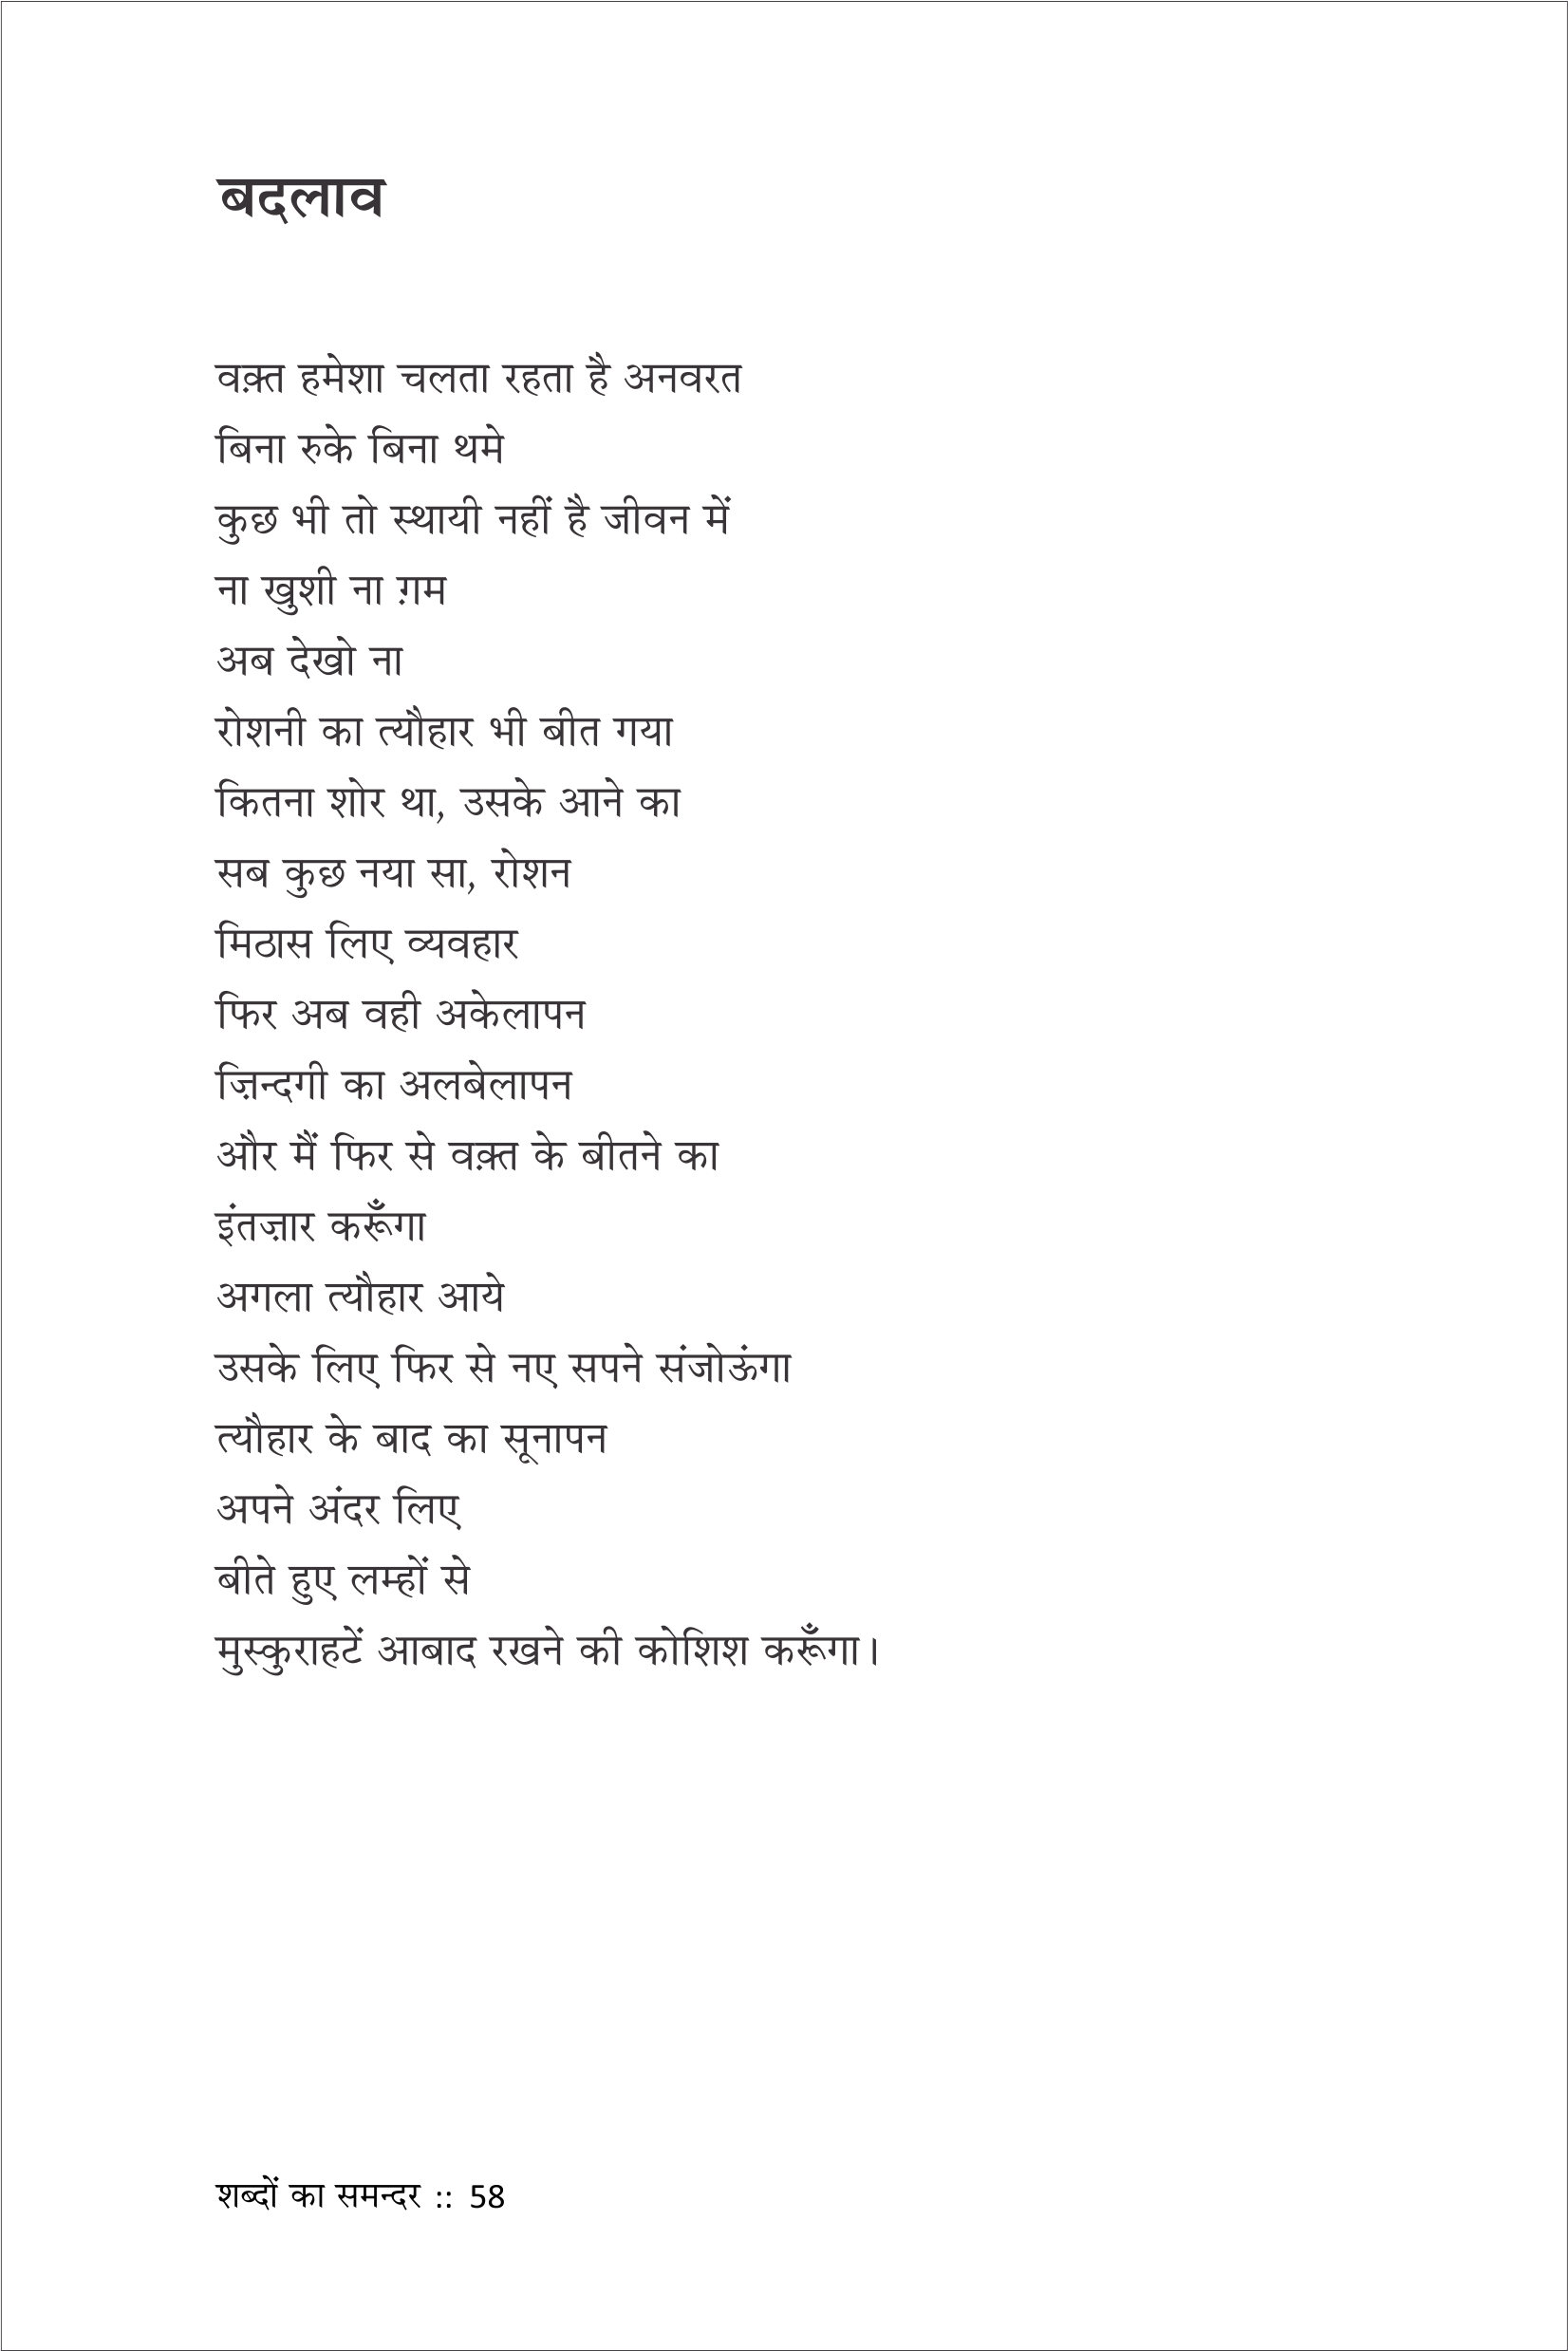 बदलाव
वक़्त हमेशा चलता रहता है अनवरत
बिना रुके बिना थमे
कुछ भी तो स्थायी नहीं है जीवन में
ना खुशी ना ग़म
अब देखो ना
रोशनी का त्यौहार भी बीत गया
कितना शोर था, उसके आने का
सब कुछ नया सा, रोशन
मिठास लिए व्यवहार
फिर अब वही अकेलापन
ज़िन्दगी का अलबेलापन
और मैं फिर से वक़्त के बीतने का
इंतज़ार करूँगा
अगला त्यौहार आये
उसके लिए फिर से नए सपने संजोऊंगा
त्यौहार के बाद का सूनापन
अपने अंदर लिए
बीते हुए लम्हों से
मुस्कुराहटें आबाद रखने की कोशिश करूँगा।
शब्दों का समन्दर :: 58